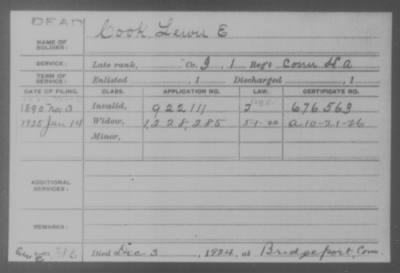 DEAD
NAME OF SOLDIER: Cook, Lewis E
SERVICE: Late rank, Co. I, 1 Reg't Conn H A
TERM OF SERVICE: Enlisted , 1 Discharged , 1
DATE OF FILING. CLASS. APPLICATION NO. LAW. CERTIFICATE NO.
1890 Nov 3 Invalid, 922111 676563
1925 Jan 14 Widow, 1,228,285 5-1-20 A 10-21-26
Minor,
ADDITIONAL SERVICES:
REMARKS:
Died Dec 3, 1924, at Bridgeport, Conn.